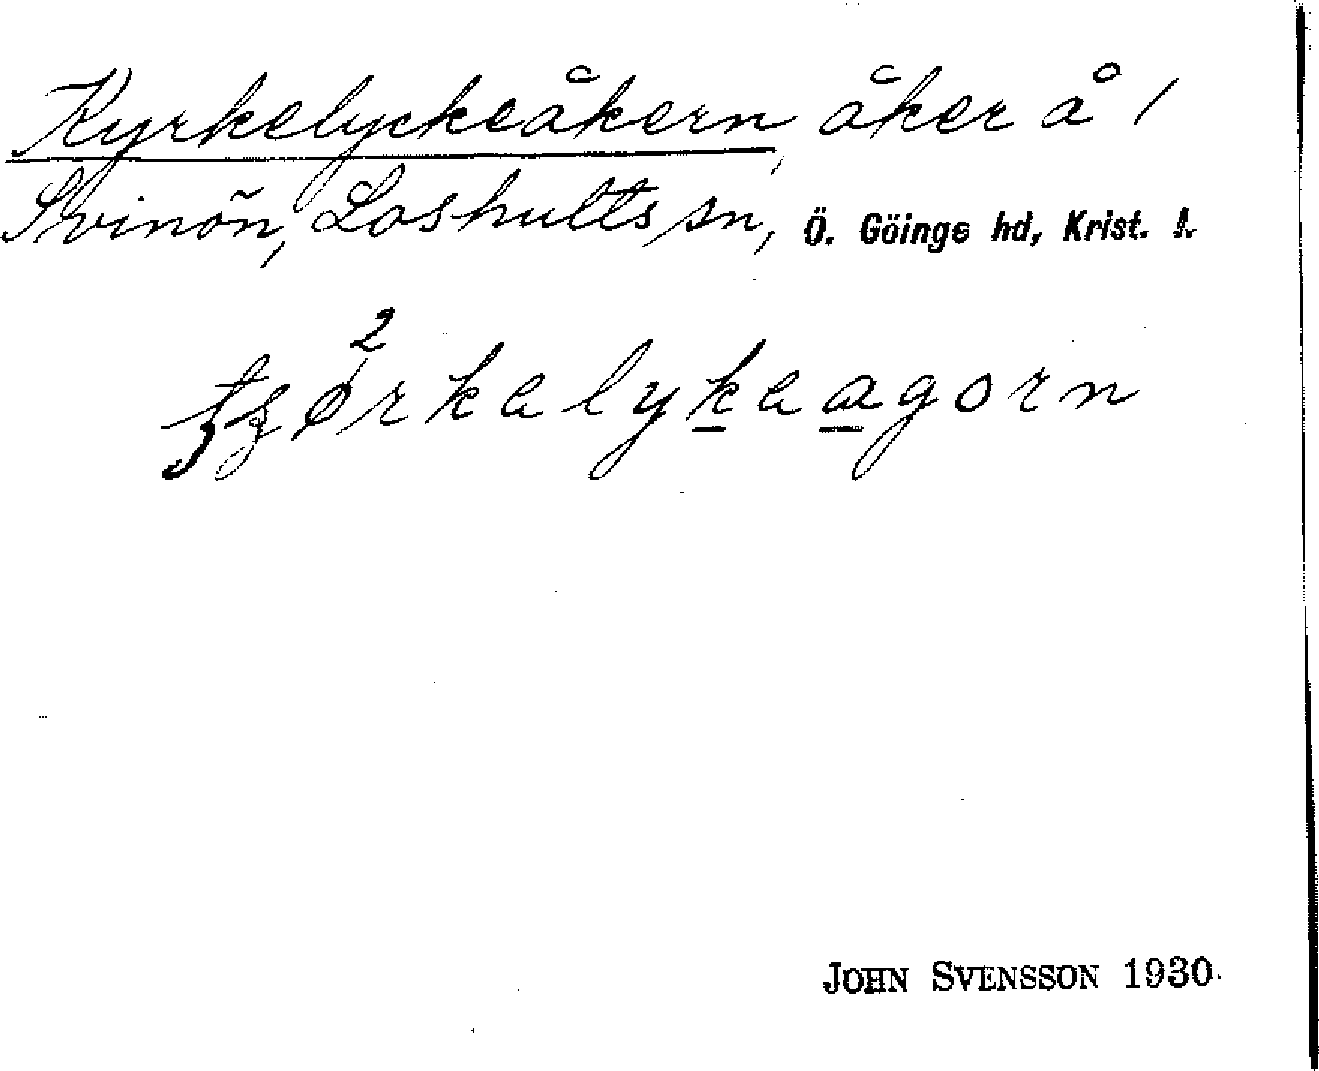 Kyrkelyckeåkern, åker å 1
Svinön, Loshults sn, Ö. Göinge hd, Krist. l.
2
kelykeagorn
JOHN SVENSSON 1930.